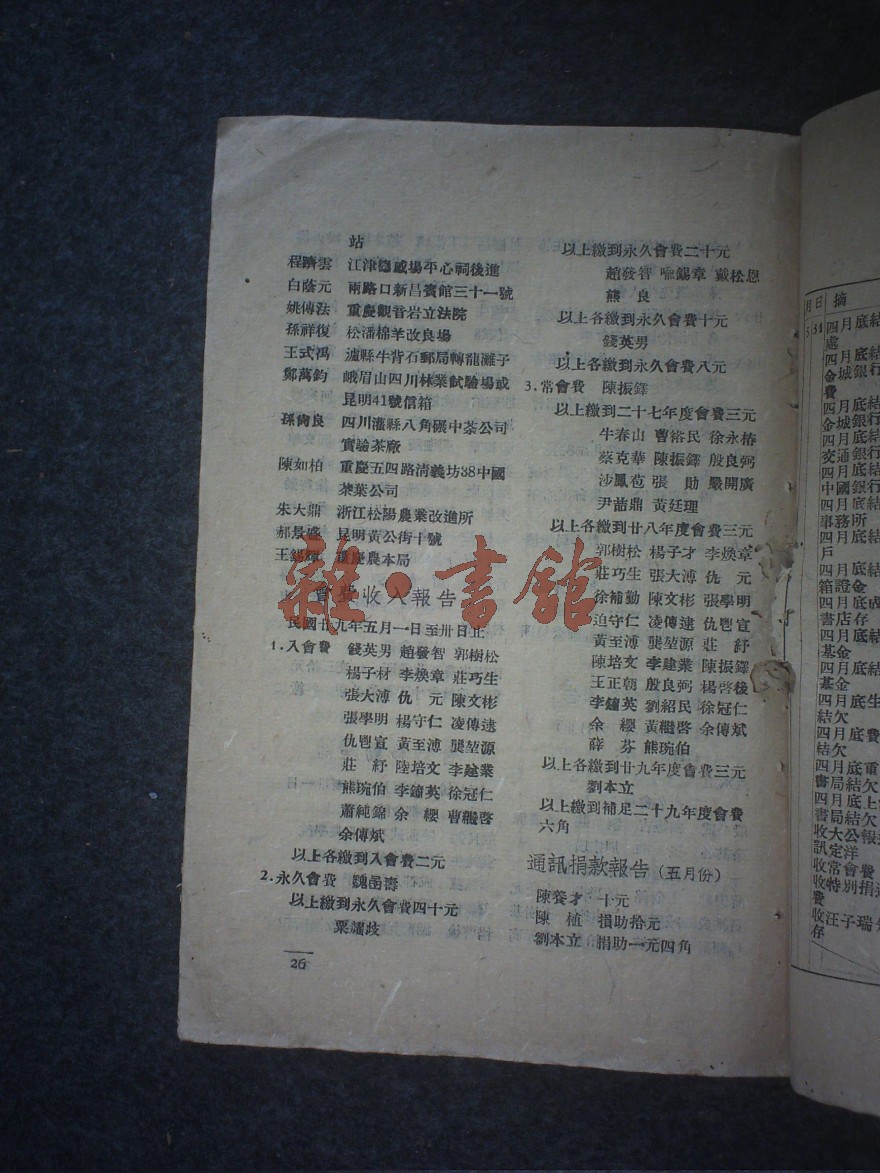 站
程躋雲 江津德感場平心祠後進
白蔭元 兩路口新昌賓館三十一號
姚傳法 重慶觀音岩立法院
孫祥復 松潘棉羊改良場
王式馮 瀘縣牛背石郵局轉龍灘子
鄭萬鈞 峨眉山四川林業試驗場或
昆明41號信箱
孫尙良 四川灌縣八角碾中茶公司
實驗茶廠
陳如柏 重慶五四路清義坊38中國
茶葉公司
朱大鼎 浙江松陽農業改進所
郝景盛 昆明黃公街十號
王錫 重慶農本局
會費收入報告
民國廿九年五月一日至卅日止
1.入會費 錢英男 趙發智 郭樹松
楊子材 李煥章 莊巧生
張大溥 仇 元 陳文彬
張學明 楊守仁 凌傳逮
仇 宣 黃至溥 龔堃源
莊 紓 陸培文 李建業
熊琬伯 李鐘英 徐冠仁
蕭純錦 余 纓 曹繼啓
余傳斌
以上各繳到入會費二元
2.永久會費 魏喦壽
以上繳到永久會費四十元
粟耀歧
26
以上繳到永久會費二十元
趙發智 喩錫章 戴松恩
熊 良
以上各繳到永久會費十元
錢英男
以上各繳到永久會費八元
3.常會費 陳振鐸
以上繳到二十七年度會費三元
牛春山 曹裕民 徐永椿
蔡克華 陳振鐸 殷良弼
沙鳳苞 張 勛 嚴開廣
尹喆鼎 黃廷理
以上各繳到廿八年度會費三元
郭樹松 楊子才 李煥章
莊巧生 張大溥 仇 元
徐補勤 陳文彬 張學明
守仁 凌傳逮 仇 宣
黃至溥 龔堃源 莊 紓
陳培文 李建業 陳振鐸
王正朝 殷良弼 楊啓後
李鐘英 劉紹民 徐冠仁
余 纓 黃繼啓 余傳斌
薛 芬 熊琬伯
以上各繳到廿九年度會費三元
劉本立
以上繳到補足二十九年度會費
六角
通訊捐款報告（五月份）
陳養才 十元
陳 植 捐助拾元
劉本立 捐助一元四角
雜·書館
月 日 摘
5 31 四月底結
處
四月底結
金城銀行
費
四月底結
金城銀行
四月底結
交通銀行
四月底結
中國銀行
四月底結
事務所
四月底結
戶
四月底結
箱證金
四月底成
書店存
四月底結
基金
四月底結
基金
四月底生
結欠
四月底費
結欠
四月底重
書局結欠
四月底上
書局結欠
收大公報
訊定洋
收常會費
收特別捐
費
收汪子瑞
存